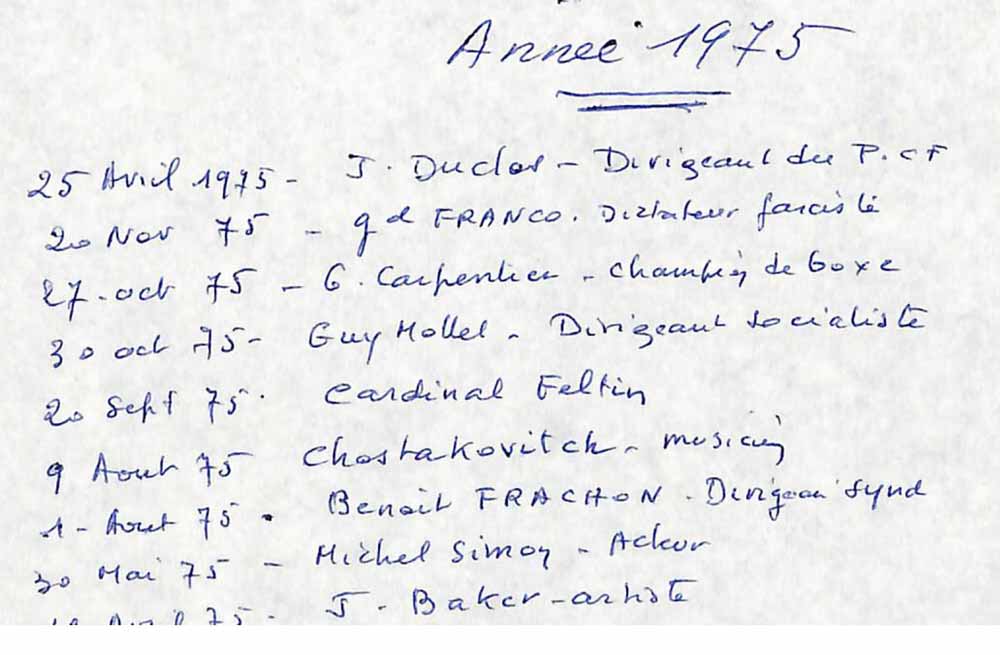 Année 1975
25 Avril 1975 - J. Duclos - Dirigeant du P.C.F
20 Nov 75 - gal FRANCO. Dictateur fasciste
27. oct 75 - G. Carpentier - champion de boxe
30 oct 75 - Guy Mollet - Dirigeant socialiste
20 Sept 75. Cardinal Feltin
9 Aout 75 Chostakovitch - musicien
1 - Aout 75. Benoit FRACHON - Dirigean Synd
30 Mai 75 - Michel Simon - Acteur
Avril 75 - J. Baker - artiste